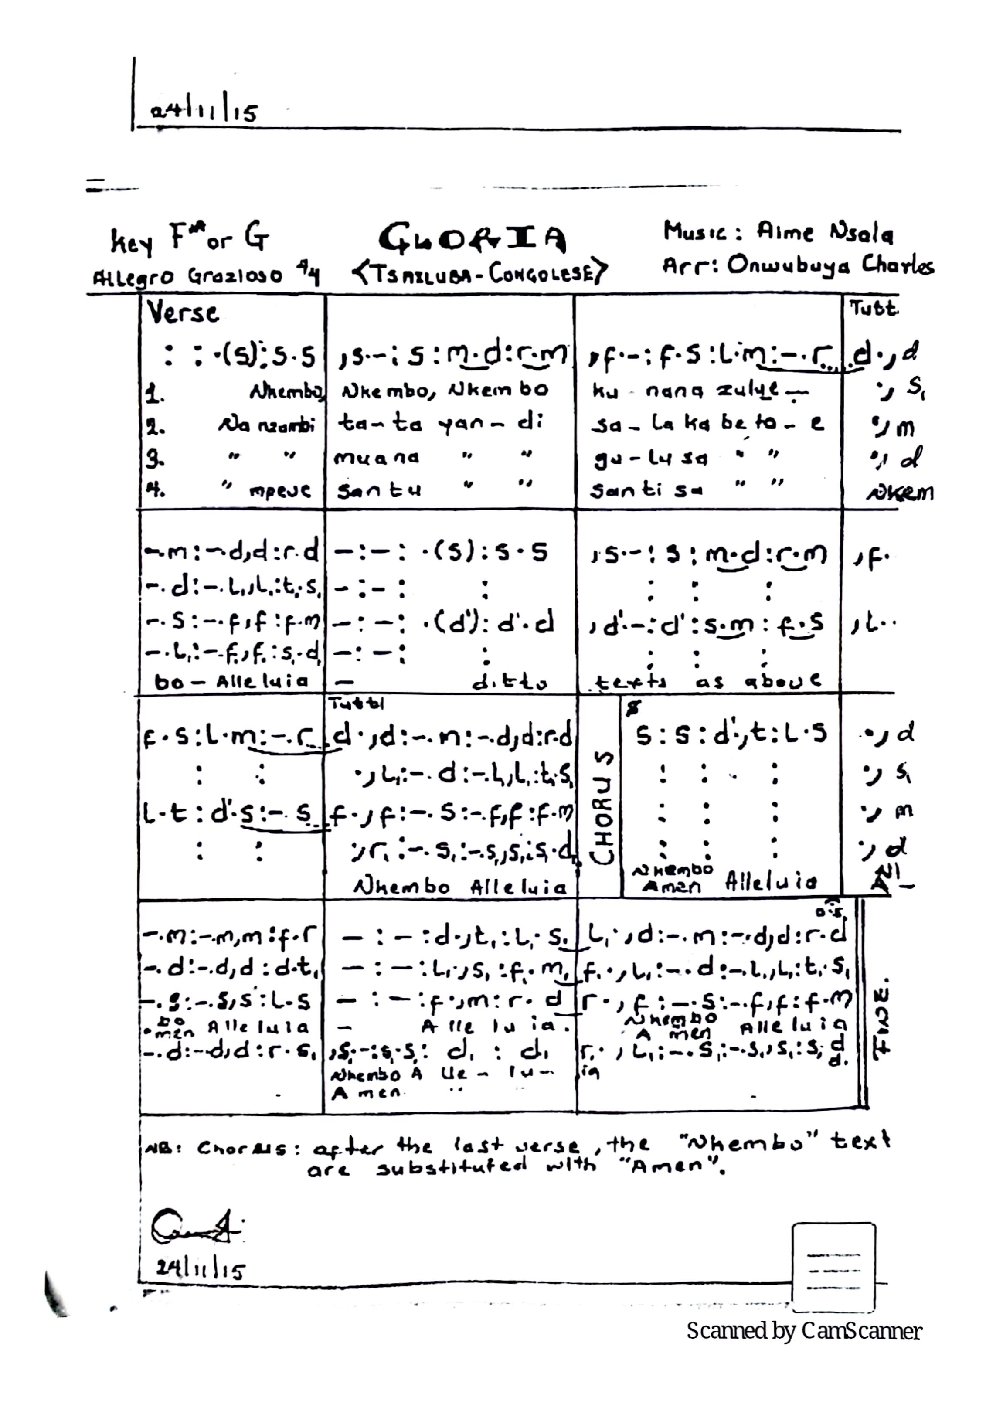 24/11/15
Key F# or G GLORIA Music: Aime Nsala
Allegro Grazioso 4/4 <TSAILUBA-CONGOLESE> Arr: Onwubuya Charles
Verse Tutt
: : ·(s):s·s ,s·-:s:m·d:r·m ,f·-:f·s:l·m:-·r d·,d
1. Nkembo, Nkembo, Nkembo ku-nana zulue— ·,s,
2. Na nzambi ta-ta yan-di sa-la ka be to-e ·,m
3. " " muana " " gu-lu sa " " ·,d
4. " mpeve santu " " santi sa " " Nkem
-·m:-·d,d:r·d -:-: ·(s):s·s ,s·-:s:m·d:r·m ,f·
-·d:-·l,,l,:t,·s, -:-: : : : :
-·s:-·f,f:f·m -:-: ·(d'):d'·d ,d'·-:d':s·m:f·s ,l··
-·l,:-·f,,f,:s,·d, -:-: : : : :
bo-Alleluia - ditto texts as above
Tutti
f·s:l·m:-·r d·,d:-·m:-·d,d:r·d CHORUS s:s:d'·,t:l·s ·,d
: : ·,l,:-·d:-·l,,l,:t,·s, : : : ·,s,
l·t:d'·s:-·s f·,f:-·s:-·f,f:f·m : : : ·,m
: : ·,r,:-·s,:-·s,,s,:s,·d, : : : ·,d
Nkembo Alleluia Nkembo Amen Alleluia
D.S.
-·m:-·m,m:f·r -:-:d·,t,:l,·s, l,·,d:-·m:-·d,d:r·d
-·d:-·d,d:d·t, -:-:l,·,s,:f,·m, f,·,l,:-·d:-·l,,l,:t,·s,
-·s:-·s,s:l·s -:-:f·,m:r·d r·,f:-·s:-·f,f:f·m FINE.
bo men Alleluia - Alle lu ia. Nkembo Amen Alleluia
-·d:-·d,d:r·s, ,s,·-:s,·s,:d,:d, r,·,l,:-·s,:-·s,,s,:s,·d d.
Nkembo A lle-lu- ia
Amen " "
NB: Chorus: after the last verse, the "Nkembo" text
are substituted with "Amen".
24/11/15
Scanned by CamScanner